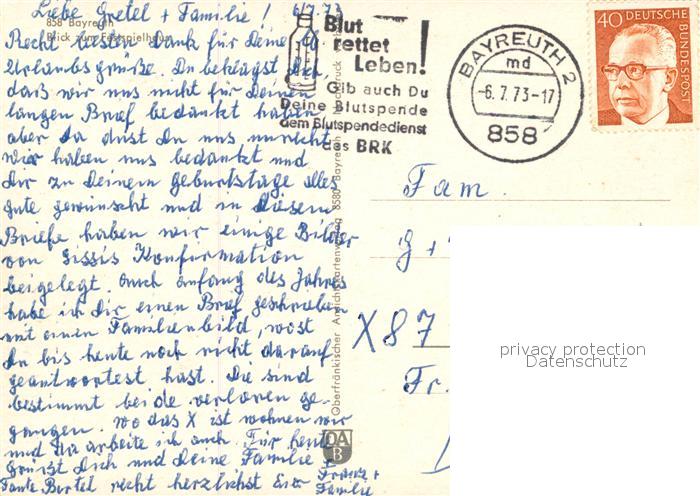 Liebe Gretel + Familie! 6/7.73
858 Bayreuth
Blick zum Festspielhaus
Recht besten Dank für Deine
Urlaubsgrüße. Du beklagst Dich,
daß wir uns nicht für Deinen
langen Brief bedankt haben
aber da tust Du uns unrecht
wir haben uns bedankt und
Dir zu Deinem Geburtstage alles
gute gewünscht und in diesem
Briefe haben wir einige Bilder
von Sissis Konfirmation
beigelegt. Auch anfang des Jahres
habe ich Dir einen Brief geschrieben
mit einen Familienbild, wost
Du bis heute noch nicht darauf
geantwortest hast. Die sind
bestimmt beide verloren ge-
gangen. wo das X ist wohnen wir
und da arbeite ich auch. Für heute
Grüßt Dich und Deine Familie +
Tante Bertel recht herzlichst Eier Franz +
Familie
Blut
rettet
Leben!
Gib auch Du
Deine Blutspende
dem Blutspendedienst
des BRK
BAYREUTH 2
md
-6.7.73-17
858
40 DEUTSCHE
BUNDESPOST
Oberfränkischer Ansichtskartenverlag 8580 Bayreuth
DA
B
Fam.
G +
X 87
Fr.
privacy protection
Datenschutz